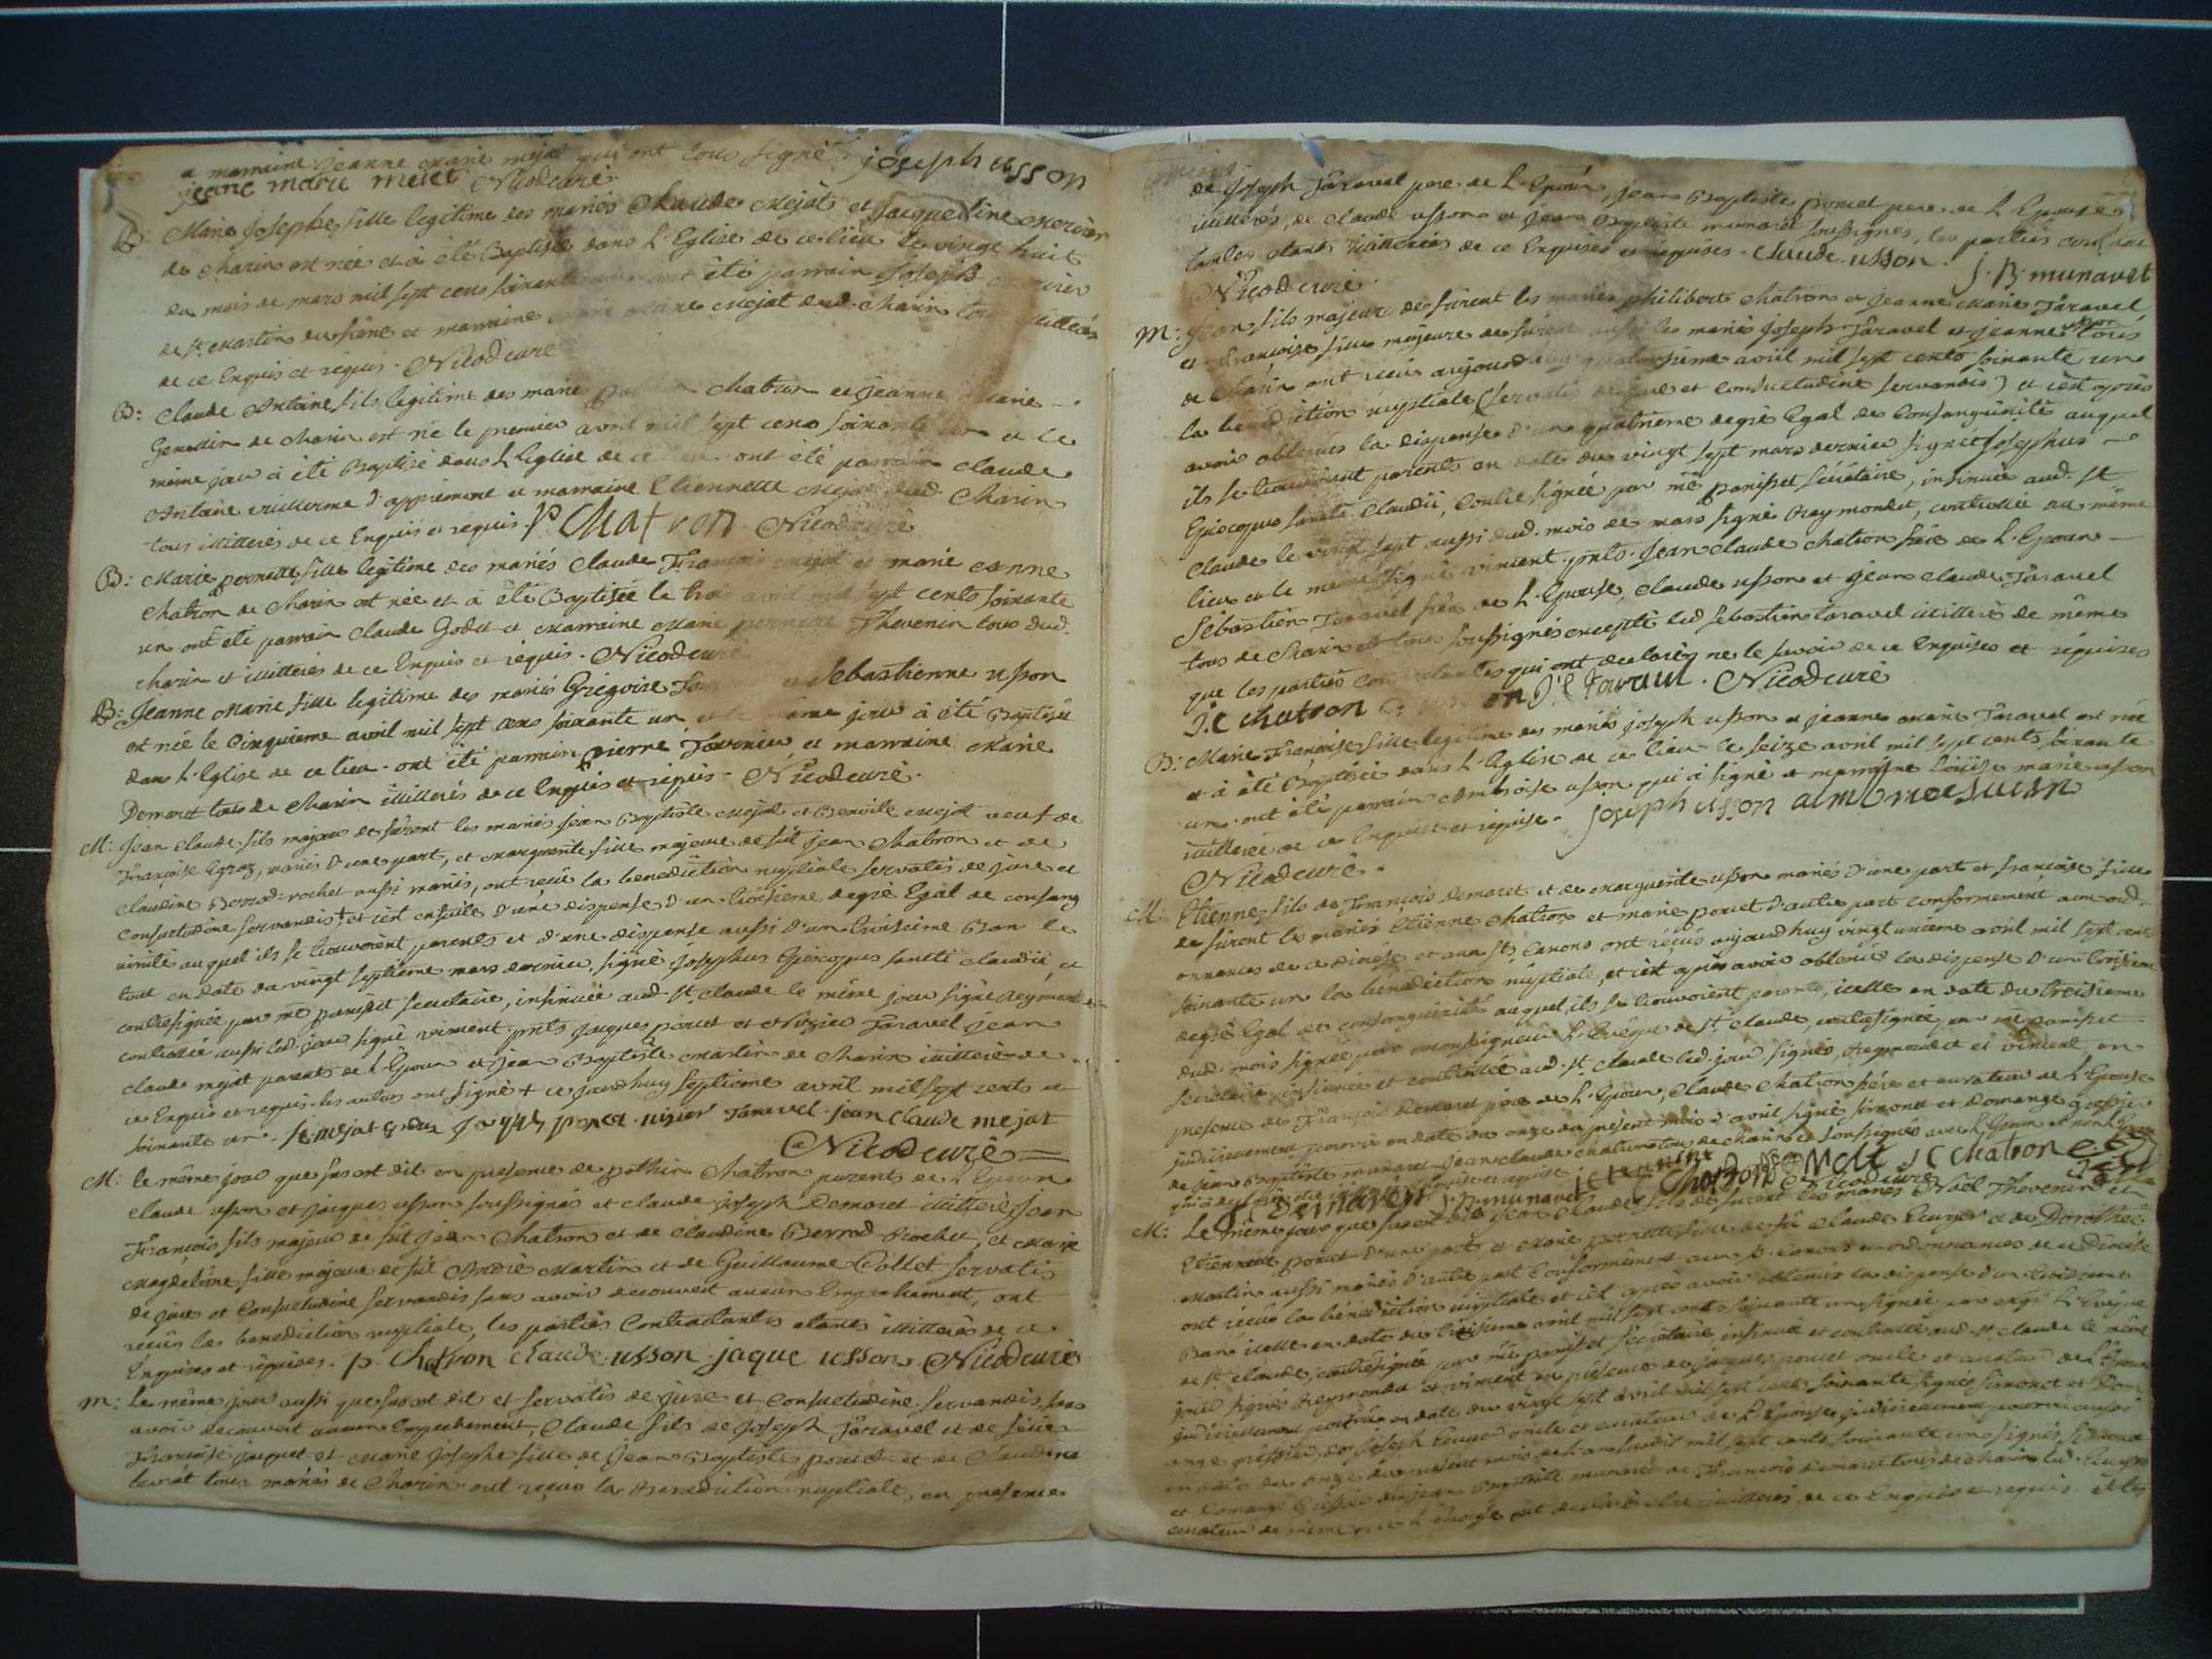 a marraine Jeanne Marie mejat qui ont tous signé joseph usson
jeane marie meiet Nicod curé
B: Marie Josephe fille legitime des mariés Claude Mejat et Jacqueline Mercier
de Charix est née et à été Baptisée dans L'Eglise de ce lieu le vingt huit
du mois de mars mil sept cens soixante été parrain Joseph
de St. Martin du frêne et marraine Mejat dud. Charix tous illiterés
de ce Enquis et réquis. Nicod curé
B: Claude Antoine fils legitime des mariés Chatron et Jeanne Marie
de Charix est né le premier avril mil sept cens soixante un et le
même jour à été Baptisé dans L'Eglise de ce lieu ont été parrain Claude
Antoine vuillerme d'apprémont et marraine Etiennette Mejat dud. Charix
tous illiterés de ce Enquis et requis. P Chatron Nicod curé
B: Marie pernette fille legitime des mariés Claude François Mejat et marie Anne
Chatron de Charix est née et à été Baptisée le trois avril mil sept cents soixante
un ont été parrain Claude Godet et Marraine Marie pernette Thevenin tous dud.
Charix et illiterés de ce Enquis et réquis. Nicod curé
B: Jeanne Marie fille legitime des mariés Grégoire et Sebastienne usson
est née le Cinquieme avril mil sept cens soixante un et le même jour à été Baptisée
dans L'Eglise de ce lieu. ont été parrain pierre Fournier et marraine Marie
Demaret tous de Charix illiterés de ce Enquis et réquis. Nicod curé.
M: Jean Claude fils majeur de fürent les mariés Jean Baptiste Mejat et Mejat veuf de
Françoise Egraz, mariés d'une part, et Marguerite fille majeure de fût Jean Chatron et de
Claudine Berrod-rochet aussi mariés, ont reçu la benediction nuptiale servatis de jure et
Consuetudine servandis + et c'est ensuite d'une dispense d'un troisieme degré Egal de consang
uinité auquel ils se trouvoient parents et d'une dispense aussi d'un troisieme Ban le
tout en date du vingt septieme mars dernier, signé Josephus Episcopus sancti Claudii, et
contresignée par mé panisset secretaire, insinuée aud. St. Claude le même jour signé Reymondet
controllée aussi led. jour signé vincent. pnts Jacques poncet et Nizier Taravel Jean
Claude mejat parents de L'Epoux et Jean Baptiste Martin de Charix illiteré de
ce Enquis et requis. les autres ont signé + ce jourdhuy septieme avril mil sept cents
soixante un. Jaques poncet nisier Taravel jean claude mejat
Nicod curé
M: le même jour que sus est dit en presence de pothin Chatron parents de L'Epoux
Claude usson et Jacques usson soussignés et Claude-Joseph Demaret illiteré Jean
François fils majeur de fût Jean Chatron et de Claudine Berrod Rochet, et Marie
Magdeleine fille majeure de fût André Martin et de Guillaume Collet servatis
de jure et Consuetudine servandis sans avoir decouvert aucun Empechement, ont
reçus la benediction nuptiale, les parties Contractantes etants illiterés de ce
Enquises et réquises. p. Chatron claude. usson jaque usson Nicod curé
M: Le même jour aussi que sus est dit et servatis de jure et Consuetudine servandis, sans
avoir decouvert aucun Empechement, Claude fils de Joseph Taravel et de
Françoise jacquet et Marie Josephe fille de Jean Baptiste poncet et de Claudine
tous mariés de Charix ont reçus la Benediction nuptiale, en presence
de Joseph Taravel pere de L'Epoux, Jean Baptiste poncet pere de L'Epouse
illiterés, de Claude usson et Jean Baptiste munaret soussignés, les parties contrac
tantes etants illiterées de ce Enquises et réquises. claude. usson. J. B. munaret
Nicod curé.
M: Jean fils majeur de fürent les mariés philibert Chatron et Jeanne Marie Taravel,
et Françoise fille majeure de fürent aussi les mariés Joseph Taravel et Jeanne usson tous
de Charix ont reçus aujourdhuy quatorzieme avril mil sept cents soixante un
la benediction nuptiale (servatis de jure et Consuetudine servandis) et c'est après
avoir obtenus la dispense d'un quatrieme degré Egal de Consanguinité auquel
ils se trouvoient parents en date du vingt sept mars dernier signé Josephus
Episcopus sancti Claudii, Contresignée par mé panisset sécrétaire, insinuée aud. St
Claude le vingt sept aussi dud. mois de mars signé Reymondet, controllée au même
lieu et le même signé vincent. pnts. Jean Claude Chatron frére de L'Epoux
Sebastien Taravel frére de L'Epouse, Claude usson et Jean Claude Taravel
tous de Charix et tous soussignés excepté led Sebastien taravel illiteré de même
que les parties contractantes qui ont declarés ne le savoir de ce Enquises et réquises
J.C chatron J C Taravel. Nicod curé
B: Marie Françoise fille legitime des mariés joseph usson et jeanne marie Taravel est née
et à été Baptisée dans L'Eglise de ce lieu le seize avril mil sept cents soixante
un. ont été parrain Ambroise usson qui à signé et marraine Loüise marie usson
illiterée de ce Enquise et réquise. Joseph usson
Nicod curé.
M: Etienne, fils de François demaret et de Marguerite usson mariés d'une part et Françoise fille
de fürent les mariés Etienne Chatron et marie poncet d'autre part conformement aux ord
onnances de ce diocése et aux Sts Canons ont reçus aujourdhuy vingt unieme avril mil sept cents
soixante un la bénédiction nuptiale, et c'est après avoir obtenus la dispense d'un troisieme
degré Egal de consanguinité auquel ils se trouvoient parents, icelle en date du treisieme
dud. mois signée par Monseigneur L'Evêque de St. Claude, contresignée par mé panisset
secrétaire, insinuée et controllée aud. St Claude led. jour signés, Reymondet et vincent, en
presence de François Demaret pere de L'Epoux, Claude Chatron frére et curateur de L'Epouse
judiciairement pourvu en date du onze du présent mois d'avril signé simonet et Domange greffier
de Jean Baptiste munaret jean claude chatron tous de charix et soussignés avec L'Epoux et non L'Epouse
Demaret J. B. munaret J C chatron
Nicod curé
M: Le même jour que sus est dit Jean Claude fils de fürent les mariés Noël Thevenin et
Etiennette poncet d'une part et Marie pernette fille de fû Claude Ecuyer et de Dorothée
Martin aussi mariés d'autre part Conformément aux St. Canons et ordonnances de ce Diocèse
ont reçus la bénédiction nuptiale et c'est après avoir obtenus la dispense d'un troisieme
Ban icelle en date du treisieme avril mil sept cents soixante un signée par L'Evêque
de St. Claude, contresignée par mé panisset sécrétaire insinuée et controllée aud. St Claude le même
jour signés Reymondet et vincent en présence de Jacques poncet oncle et curateur de L'Epoux
judiciairement pourvu en date du vingt sept avril mil sept cents soixante signés simonet et Dom
ange greffier, de Joseph Ecuyer oncle et curateur de L'Epouse judiciairement pourvu aussi
en date du onze du présent mois de l'an susdit mil sept cents soixante un signés, simonet
et Domange greffier de Jean Baptiste munaret de François Demaret tous de Charix led. Ecuyer
curateur de même que L'Epouse ont declarés être illiterés de ce Enquis et requis. et les